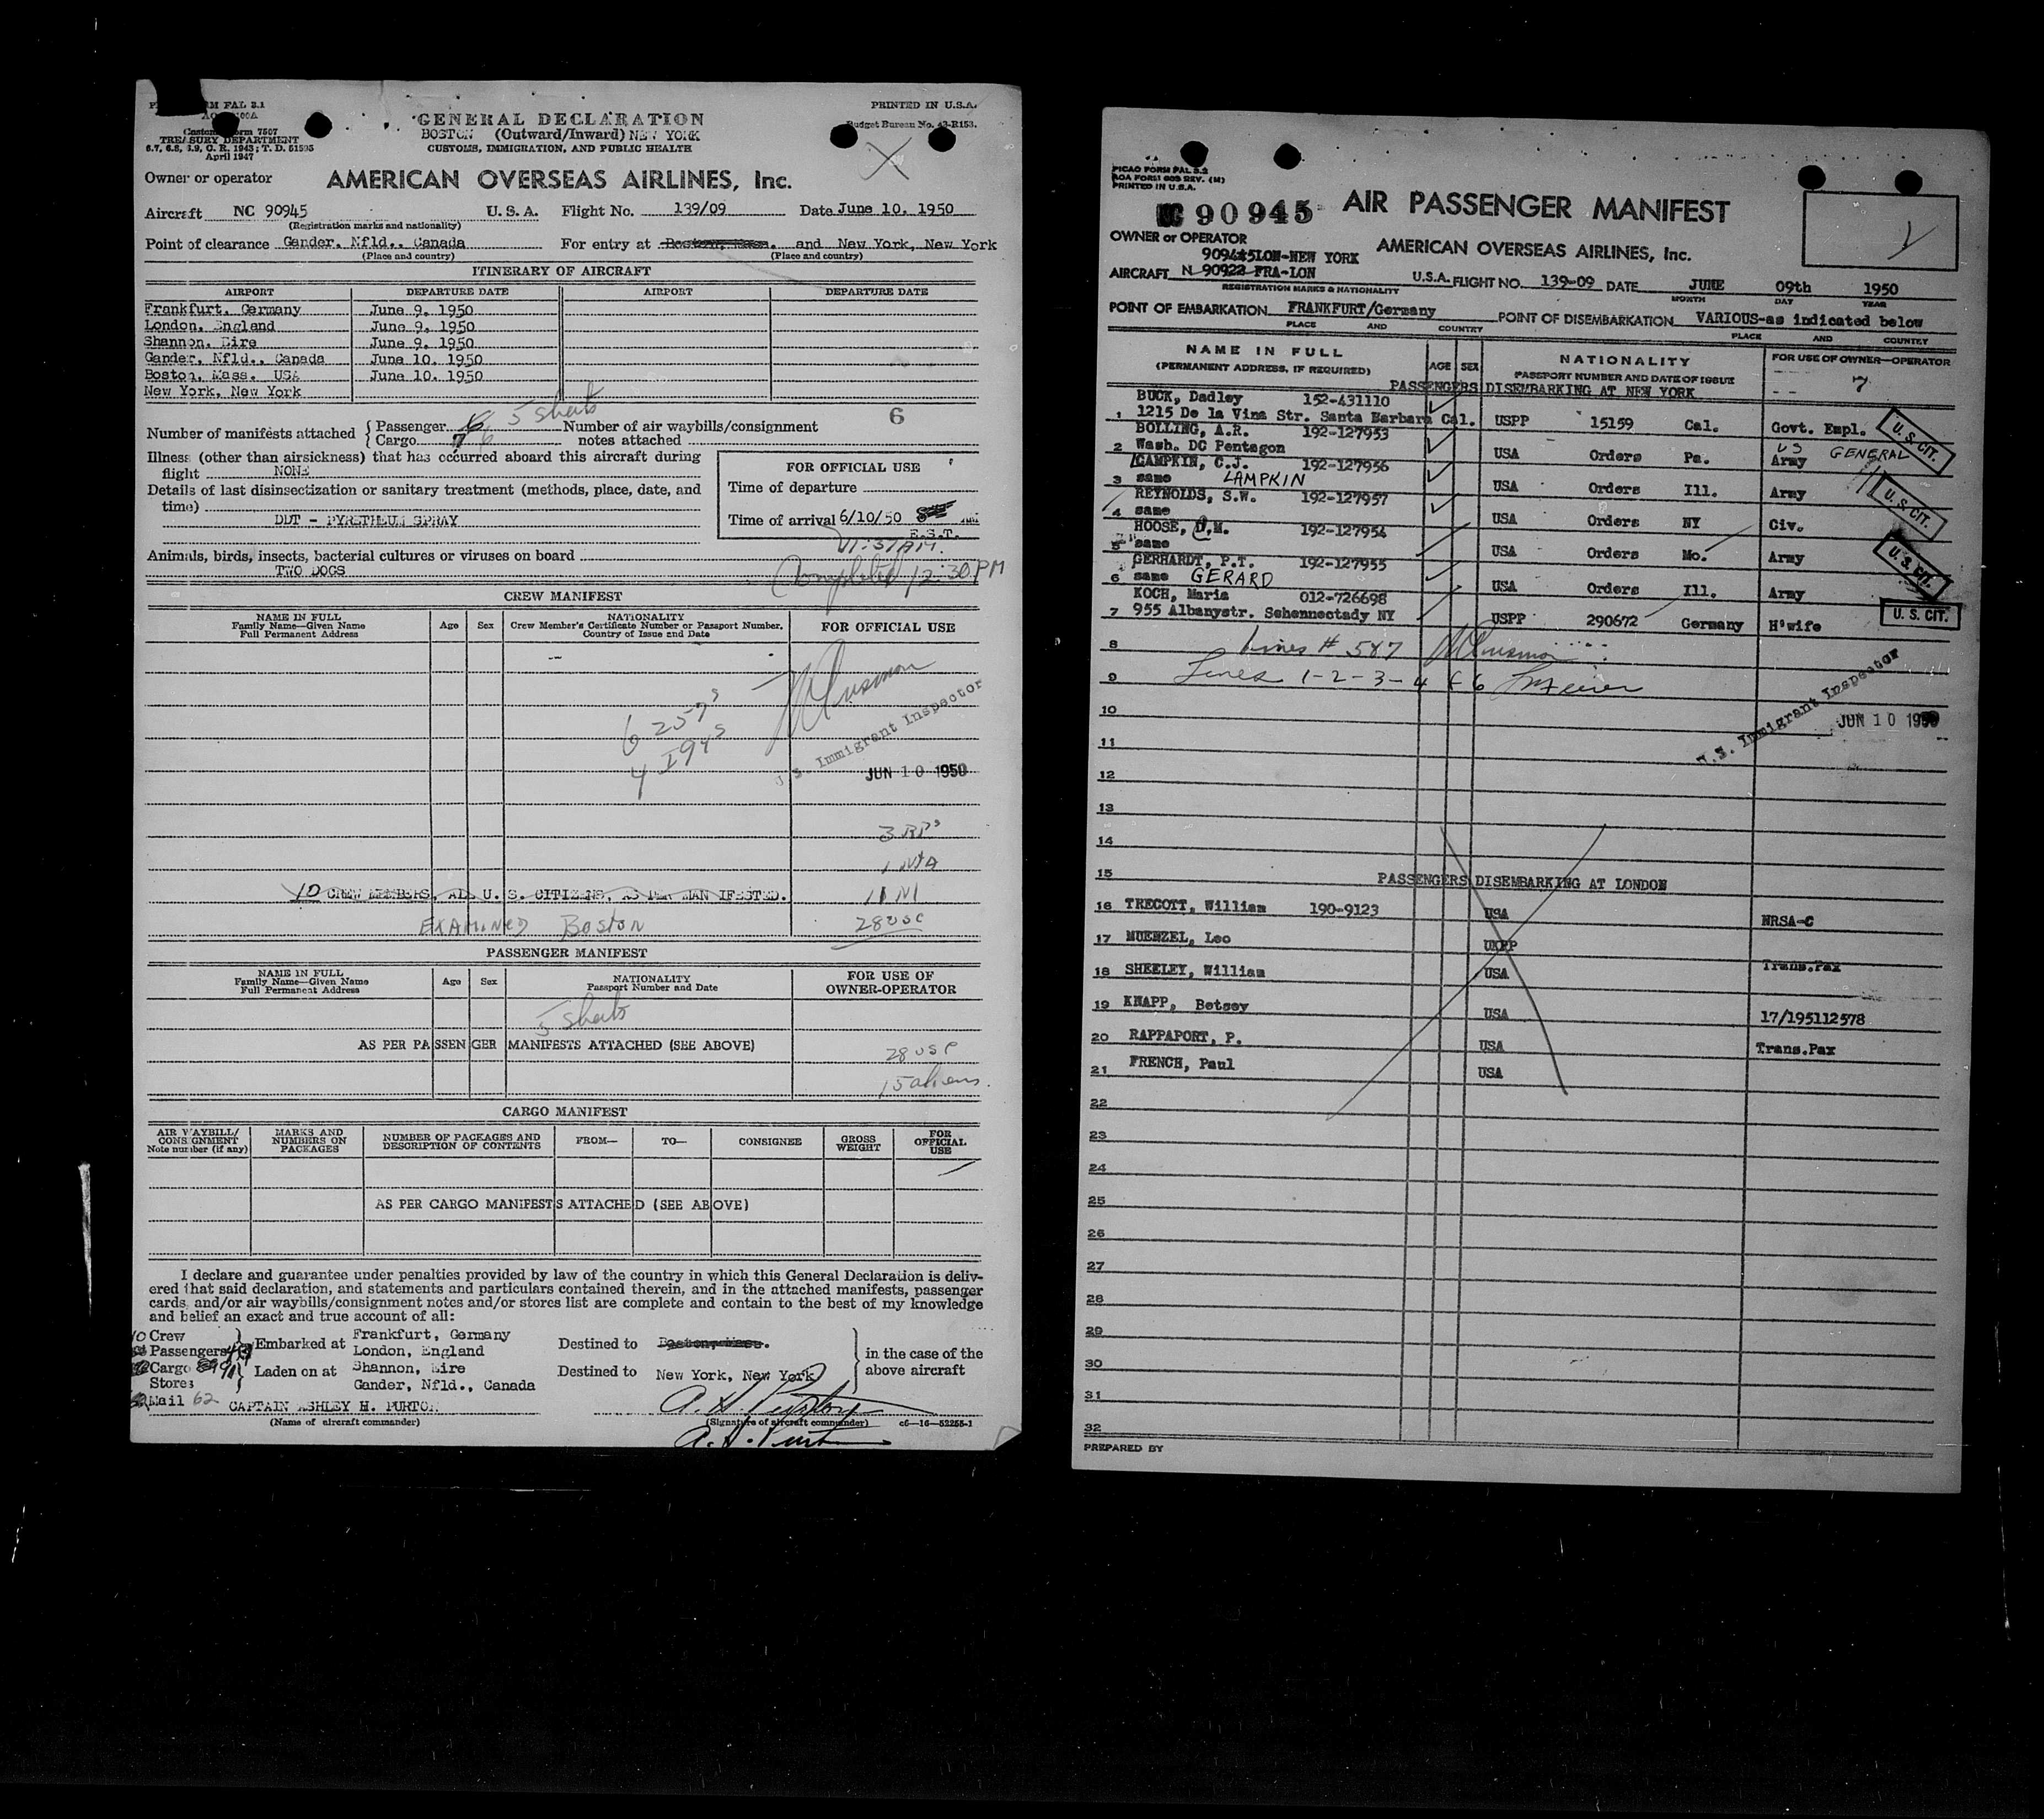 RM FAL 2.1
Customs Form 7507
TREASURY DEPARTMENT
6.7, 6.8, 6.9, C. R. 1943; T. D. 51595
April 1947
GENERAL DECLARATION
BOSTON (Outward/Inward) NEW YORK
CUSTOMS, IMMIGRATION, AND PUBLIC HEALTH
PRINTED IN U.S.A.
Budget Bureau No. 43-R153.
X
Owner or operator AMERICAN OVERSEAS AIRLINES, Inc.
Aircraft NC 90945 U. S. A. Flight No. 139/09 Date June 10, 1950
(Registration marks and nationality)
Point of clearance Gander, Nfld., Canada For entry at Boston, Mass. and New York, New York
(Place and country) (Place and country)
ITINERARY OF AIRCRAFT
AIRPORT DEPARTURE DATE AIRPORT DEPARTURE DATE
Frankfurt, Germany June 9, 1950
London, England June 9, 1950
Shannon, Eire June 9, 1950
Gander, Nfld., Canada June 10, 1950
Boston, Mass. USA June 10, 1950
New York, New York
Number of manifests attached Passenger 6 5 sheets Number of air waybills/consignment 6
Cargo 7 6 notes attached
Illness (other than airsickness) that has occurred aboard this aircraft during
flight NONE
Details of last disinsectization or sanitary treatment (methods, place, date, and
time)
DDT - PYRETHEUM SPRAY
FOR OFFICIAL USE
Time of departure
Time of arrival 6/10/50
E.S.T.
11:37AM.
Animals, birds, insects, bacterial cultures or viruses on board
TWO DOGS
Completed 12:30PM
CREW MANIFEST
NAME IN FULL Age Sex NATIONALITY FOR OFFICIAL USE
Family Name—Given Name Crew Member's Certificate Number or Passport Number,
Full Permanent Address Country of Issue and Date
6 257's
4 I94s
U. S. Immigrant Inspector
JUN 10 1950
3 RPs
10 CREW MEMBERS, ALL U. S. CITIZENS, AS PER MAN IFESTED.
EXAMINED BOSTON
28 USC
PASSENGER MANIFEST
NAME IN FULL Age Sex NATIONALITY FOR USE OF
Family Name—Given Name Passport Number and Date OWNER-OPERATOR
Full Permanent Address
5 sheets
AS PER PASSENGER MANIFESTS ATTACHED (SEE ABOVE)
28 USC
15 aliens.
CARGO MANIFEST
AIR WAYBILL/ CONSIGNMENT Note number (if any) MARKS AND NUMBERS ON PACKAGES NUMBER OF PACKAGES AND DESCRIPTION OF CONTENTS FROM— TO— CONSIGNEE GROSS WEIGHT FOR OFFICIAL USE
AS PER CARGO MANIFESTS ATTACHED (SEE ABOVE)
I declare and guarantee under penalties provided by law of the country in which this General Declaration is deliv-
ered that said declaration, and statements and particulars contained therein, and in the attached manifests, passenger
cards and/or air waybills/consignment notes and/or stores list are complete and contain to the best of my knowledge
and belief an exact and true account of all:
10 Crew Embarked at Frankfurt, Germany Destined to Boston, Mass. in the case of the
Passengers 43 London, England above aircraft
Cargo Laden on at Shannon, Eire Destined to New York, New York
Stores Gander, Nfld., Canada
Mail 62 CAPTAIN ASHLEY H. PURTON
(Name of aircraft commander) (Signature of aircraft commander) c6—16—52255-1
PICAO FORM FAL 2.2
AOA FORM 603 REV. (M)
PRINTED IN U.S.A.
90945 AIR PASSENGER MANIFEST
OWNER or OPERATOR AMERICAN OVERSEAS AIRLINES, Inc.
90945LON-NEW YORK
AIRCRAFT N 90922 FRA-LON U.S.A. FLIGHT NO. 139-09 DATE JUNE 09th 1950
REGISTRATION MARKS & NATIONALITY MONTH DAY YEAR
POINT OF EMBARKATION FRANKFURT/Germany POINT OF DISEMBARKATION VARIOUS-as indicated below
PLACE AND COUNTRY PLACE AND COUNTRY
NAME IN FULL AGE SEX NATIONALITY FOR USE OF OWNER—OPERATOR
(PERMANENT ADDRESS, IF REQUIRED) PASSPORT NUMBER AND DATE OF ISSUE 7
PASSENGERS DISEMBARKING AT NEW YORK
BUCK, Dadley 152-431110
1 1215 De la Vina Str. Santa Barbara Cal. USPP 15159 Cal. Govt. Empl. U.S. CIT.
BOLLING, A.R. 192-127953
2 Wash. DC Pentagon USA Orders Pa. US Army GENERAL
CAMPKIN, C.J. 192-127956
3 same LAMPKIN USA Orders Ill. Army U.S. CIT.
REYNOLDS, S.W. 192-127957
4 same USA Orders NY Civ.
HOOSE, D.M. 192-127954
5 same USA Orders Mo. Army U.S. CIT.
GERHARDT, P.T. 192-127955
6 same GERARD USA Orders Ill. Army
KOCH, Maria 012-726698
7 955 Albanystr. Schennectady NY USPP 290672 Germany H'wife U.S. CIT.
8 Lines # 5&7
9 Lines 1-2-3-4 & 6
10 U.S. Immigrant Inspector JUN 10 1950
11
12
13
14
15 PASSENGERS DISEMBARKING AT LONDON
16 TRECOTT, William 190-9123 USA NRSA-C
17 MUENZEL, Leo UKPP
18 SHEELEY, William USA Trans.Pax
19 KNAPP, Betsey USA 17/195112578
20 RAPPAPORT, P. USA Trans.Pax
21 FRENCH, Paul USA
22
23
24
25
26
27
28
29
30
31
32
PREPARED BY